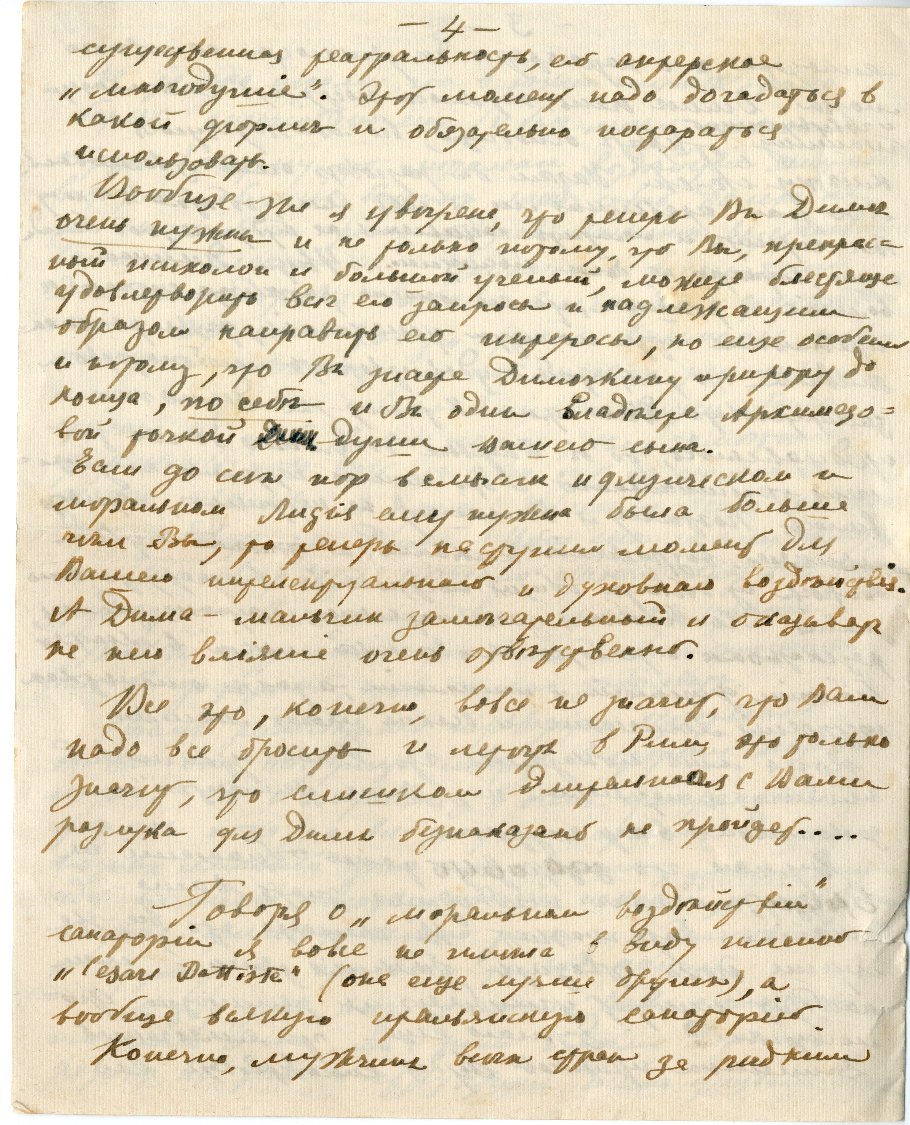 — 4 —
существенная театральность, его актерское
„многодушіе". Этот момент надо догадаться в
какой формѣ и обязательно постараться
использовать.
Вообще-же я увѣрена, что теперь Вы Димѣ
очень нужны и не только потому, что Вы, прекрас=
ный психолог и большой ученый, можете блестяще
удовлетворить всѣ его запросы и надлежащим
образом направить его интересы, но еще особенно
и потому, что Вы знаете Димочкину природу до
конца, по себѣ и Вы один владѣете Архимедо=
вой точкой души вашего сына.
Если до сих пор в смыслѣ и физическом и
моральном Лидія ему нужна была больше
чѣм Вы, то теперь наступил момент для
Вашего интелектуальнаго и духовнаго воздѣйствія.
А Дима — мальчик замѣчательный и оказывать
на него вліяніе очень отвѣтственно.
Все это, конечно, вовсе не значит, что Вам
надо все бросить и лететь в Рим, это только
значит, что слишком длительная с Вами
разлука для Димы безнаказано не пройдет....
Говоря о „моральном воздѣйствіи"
санаторіи я вовсе не имѣла в виду именно
„Cesare Battisti" (она еще лучше других), а
вообще всякую итальянскую санаторію.
Конечно, мужчины всѣх стран за рѣдкими